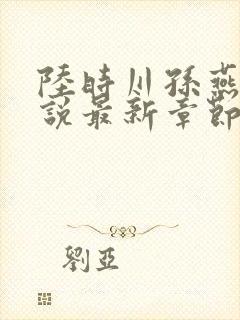 陸時川孫燕
說最新章節
劉亞